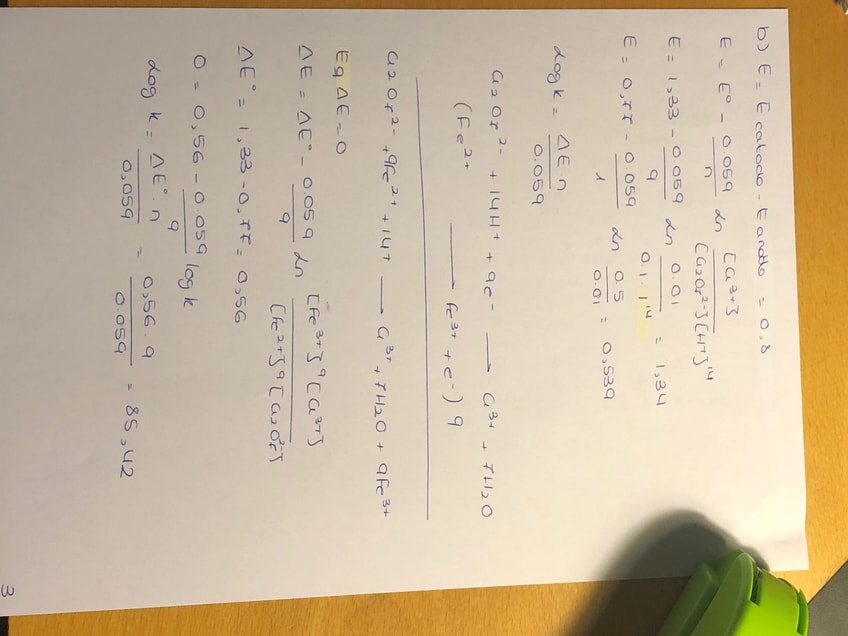 b) E = E catodo - E anodo = 0,8
E = E° - 0.059/n ln [Cr3+]/[Cr2O7 2-][H+]14
E = 1,33 - 0.059/9 ln 0.01/0.1 · 1^14 = 1,34
E = 0,77 - 0.059/1 ln 0.5/0.01 = 0,539
log k = ΔE · n/0.059
Cr2O7 2- + 14H+ + 9e- → Cr3+ + 7H2O
(Fe2+ → Fe3+ + e-) 9
Cr2O7 2- + 9Fe2+ + 14+ → Cr3+ + 7H2O + 9Fe3+
Eq ΔE = 0
ΔE = ΔE° - 0.059/9 ln [Fe3+]9 [Cr3+]/[Fe2+]9 [Cr2O7 2-]
ΔE° = 1,33 - 0,77 = 0,56
0 = 0,56 - 0.059/9 log k
log k = ΔE° · n/0,059 = 0,56 · 9/0.059 = 85,42
3